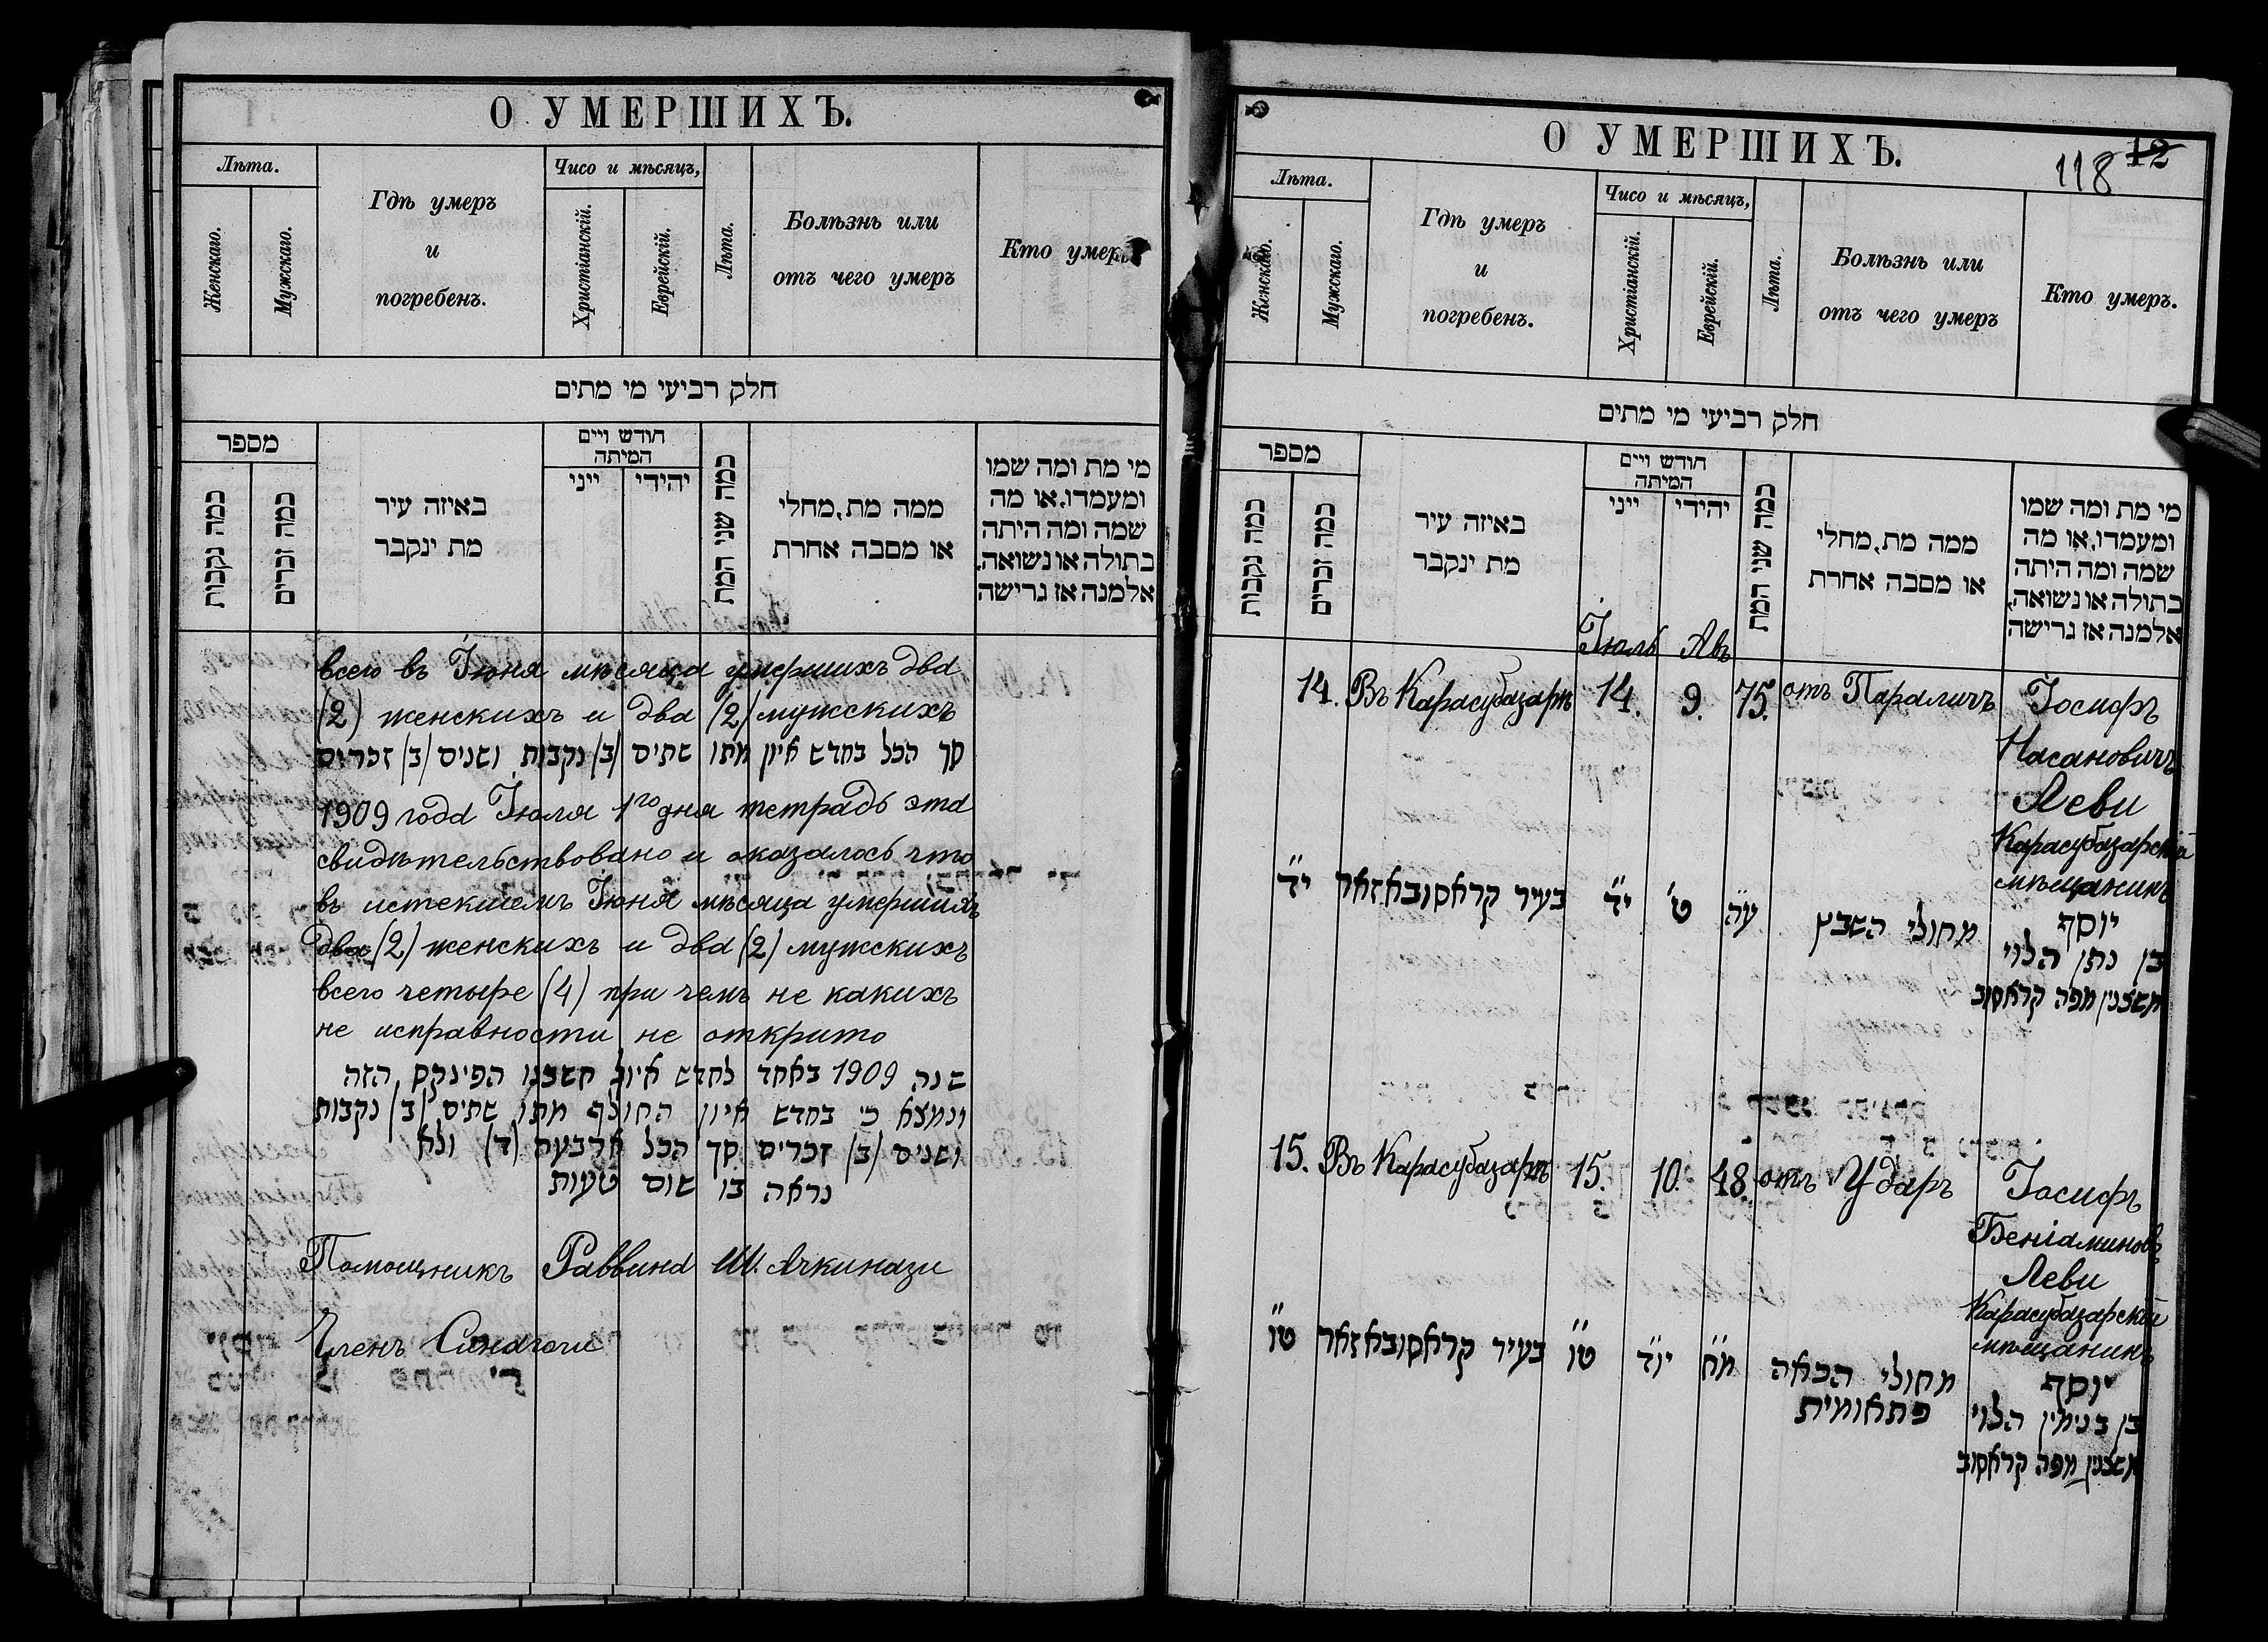 О УМЕРШИХЪ.
Лѣта.
Женскаго.
Мужскаго.
Гдѣ умеръ
и
погребенъ.
Чисо и мѣсяцъ,
Христіанскій.
Еврейскій.
Лѣта.
Болѣзнь или
отъ чего умеръ
Кто умеръ.
חלק רביעי מי מתים
מספר
כמה נקבות
כמה זכרים
באיזה עיר
מת ינקבר
חודש ויים
המיתה
ייני
יהידי
כמה שני המת
ממה מת, מחלי
או מסבה אחרת
מי מת ומה שמו
ומעמדו, או מה
שמה ומה היתה
בתולה או נשואה,
אלמנה אז גרישה
всего въ Іюня мѣсяца умершихъ два
(2) женскихъ и два (2) мужскихъ
סך הכל בחדש איון מתו שתים (ב) נקבות ושנים (ב) זכרים
1909 года Іюля 1го дня тетрадь эта
свидѣтельствовано и оказалось что
въ истекшемъ Іюня мѣсяца умершихъ
два (2) женскихъ и два (2) мужскихъ
всего четыре (4) при чемъ не какихъ
не исправности не открито
שנה 1909 באחד לחדש איול חשבנו הפינקס הזה
ונמצא כי בחדש איון החולף מתו שתים (ב) נקבות
ושנים (ב) זכרים סך הכל ארבעה (ד) ולא
נראה בו שום טעות
Помощникъ Раввина Ш. Ачкинази
Членъ Синагоги
О УМЕРШИХЪ.
118 12
Лѣта.
Женскаго.
Мужскаго.
Гдѣ умеръ
и
погребенъ.
Чисо и мѣсяцъ,
Христіанскій.
Еврейскій.
Лѣта.
Болѣзнь или
отъ чего умеръ
Кто умеръ.
חלק רביעי מי מתים
מספר
כמה נקבות
כמה זכרים
באיזה עיר
מת ינקבר
חודש ויים
המיתה
ייני
יהידי
כמה שני המת
ממה מת, מחלי
או מסבה אחרת
מי מת ומה שמו
ומעמדו, או מה
שמה ומה היתה
בתולה או נשואה,
אלמנה אז גרישה
Іюль Авъ
14. Въ Карасубазарѣ 14. 9. 75. отъ Параличъ Іосифъ
Насановичъ
Леви
Карасубазарскій
мѣщанинъ
י״ד בעיר קראסובאזאר י״ד ט' ע״ה מחולי השבץ יוסף
בן נתן הלוי
משצנין מפה קראסוב
15. Въ Карасубазарѣ 15. 10. 48. отъ Ударъ Іосифъ
Беніаминовъ
Леви
Карасубазарскій
мѣщанинъ
ט״ו בעיר קראסובאזאר ט״ו יו״ד מ״ח מחולי הכאה יוסף
פתאומית בן בנימין הלוי
משצנין מפה קראסוב